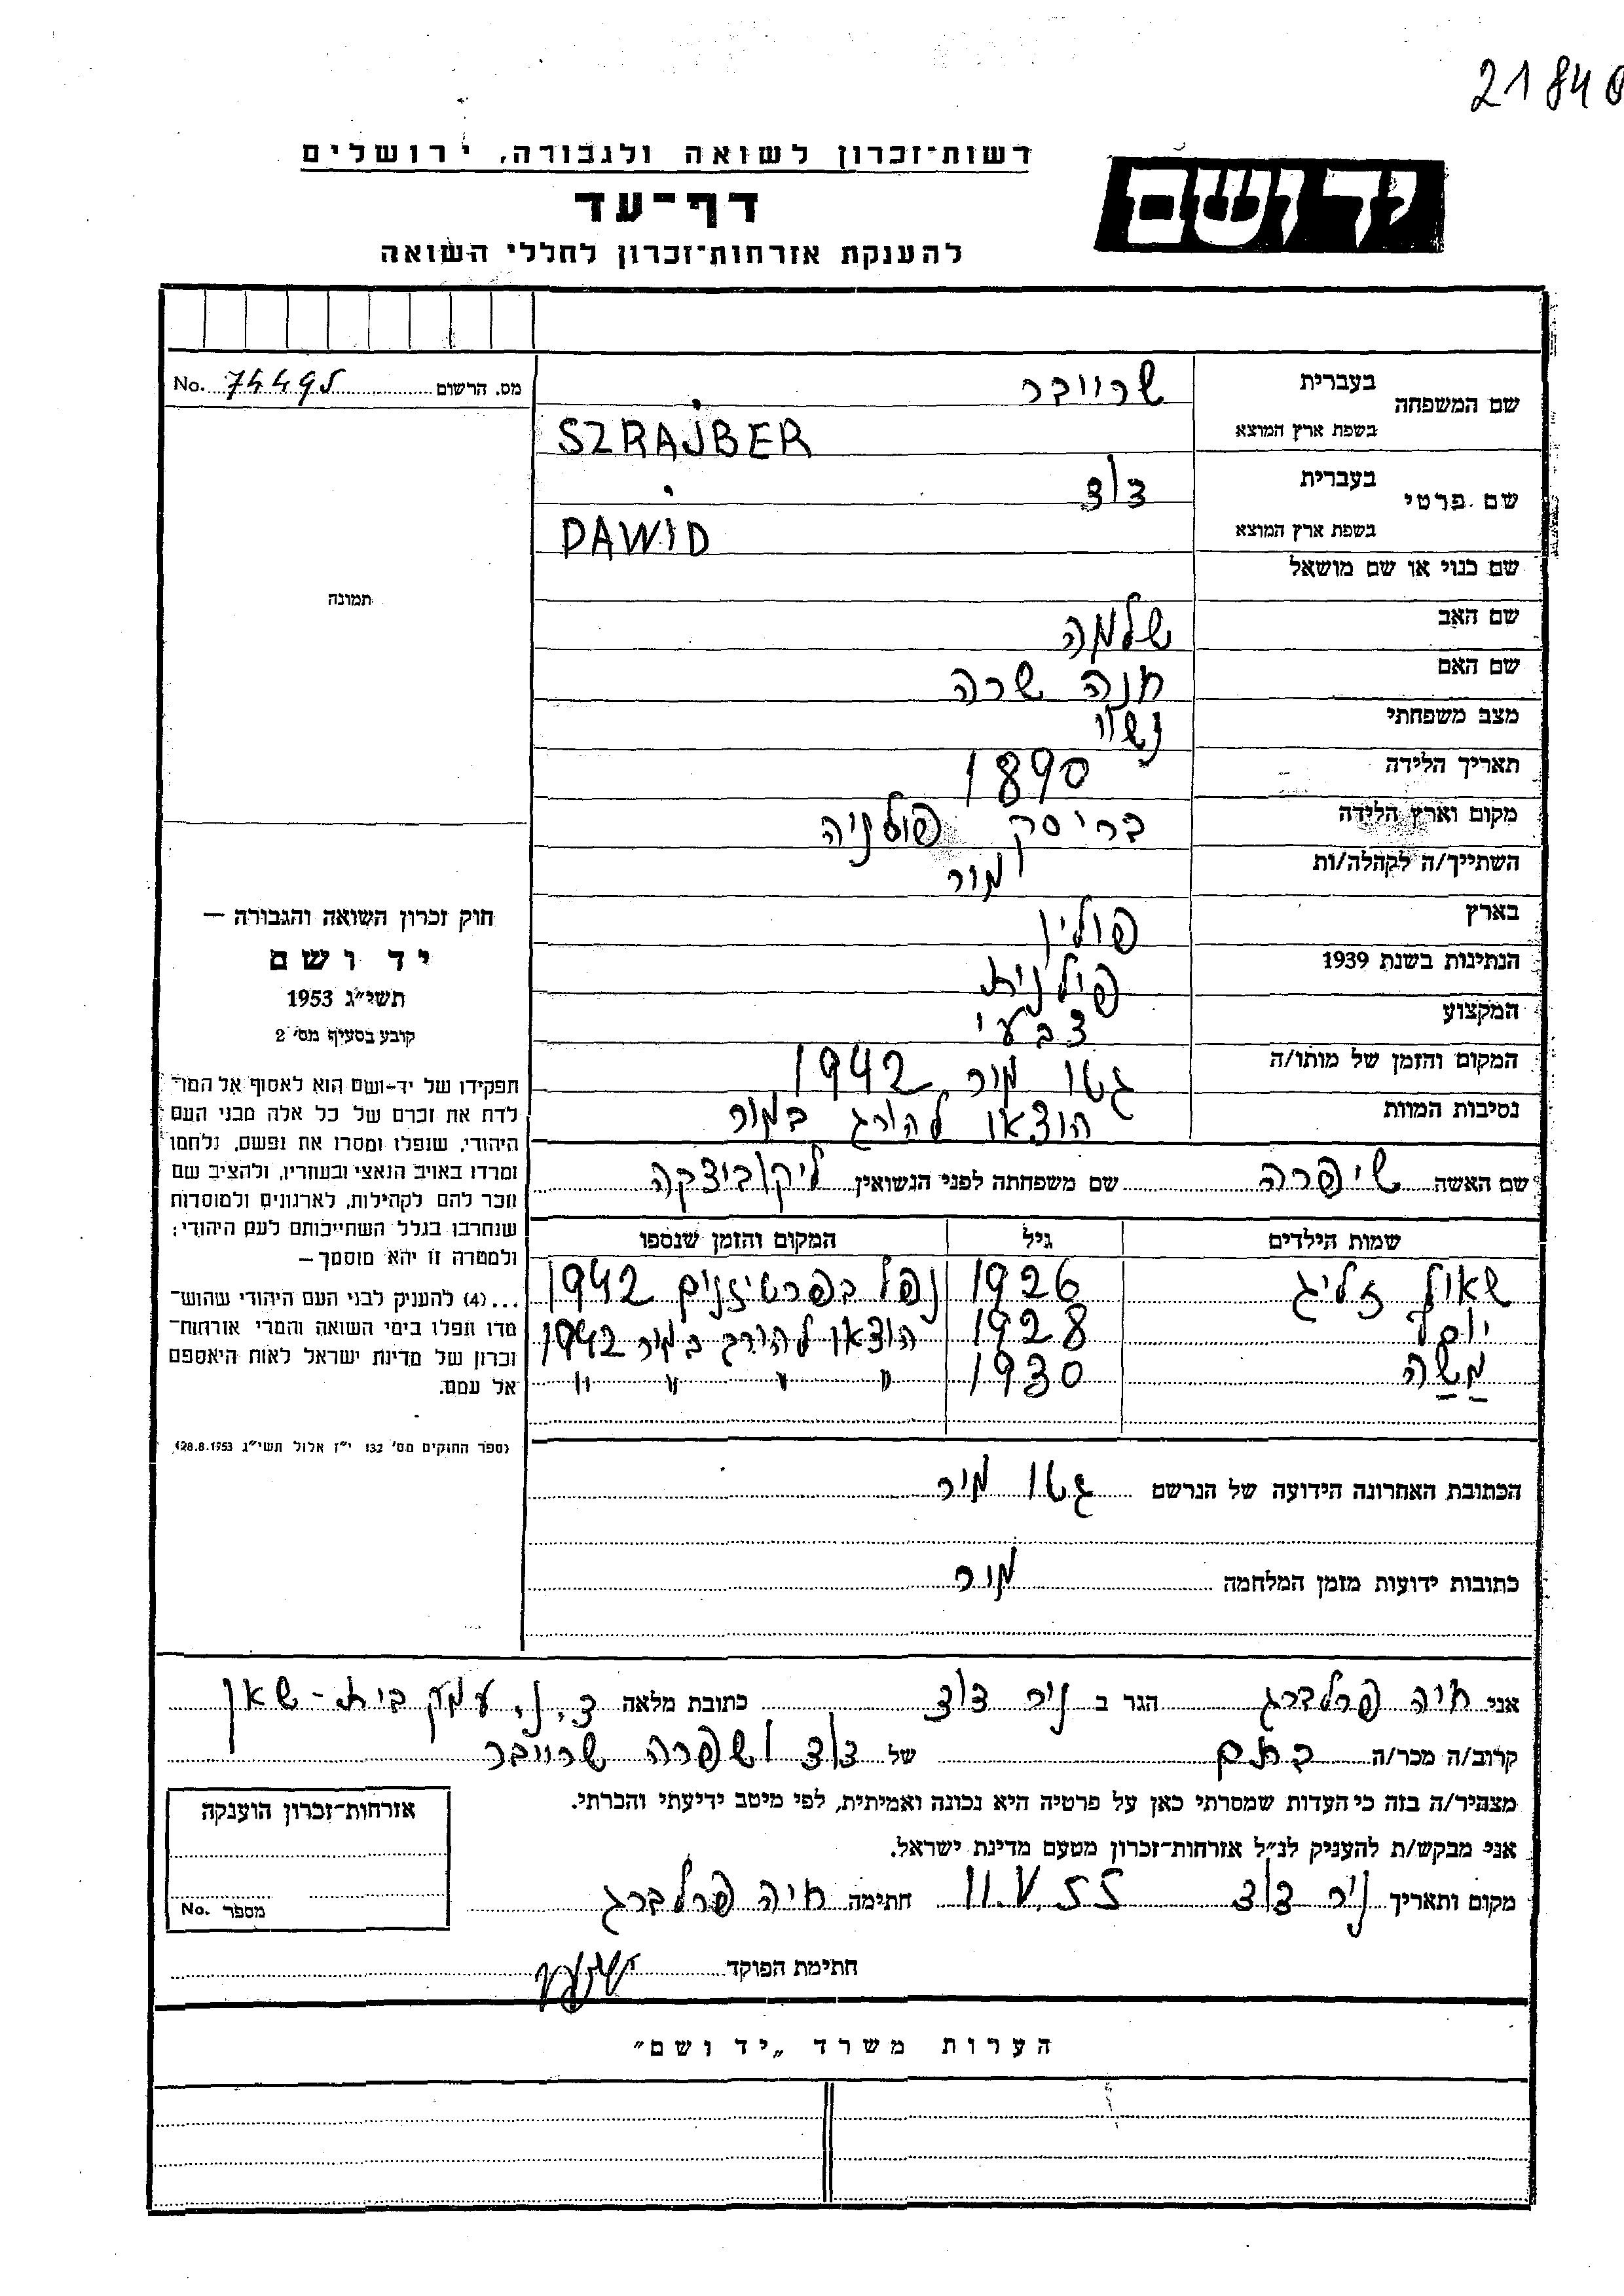 2184
רשות־זכרון לשואה ולגבורה, ירושלים
יד ושם
דף־עד
להענקת אזרחות־זכרון לחללי השואה
מס. הרשום No. 74495
שם המשפחה בעברית שרייבר
בשפת ארץ המוצא SZRAJBER
שם פרטי בעברית דוד
בשפת ארץ המוצא DAWID
שם כנוי או שם מושאל
תמונה
שם האב שלמה
שם האם חנה שרה
מצב משפחתי נשוי
תאריך הלידה 1890
מקום וארץ הלידה בריסק פולניה
השתייך/ה לקהלה/ות מיר
בארץ פולין
הנתינות בשנת 1939 פולנית
המקצוע צבעי
המקום והזמן של מותו/ה גטו מיר 1942
נסיבות המוות הוצאו להורג במיר
חוק זכרון השואה והגבורה —
יד ושם
תשי״ג 1953
קובע בסעיף מס׳ 2
תפקידו של יד־ושם הוא לאסוף אל המו־
לדת את זכרם של כל אלה מבני העם
היהודי, שנפלו ומסרו את נפשם, נלחמו
ומרדו באויב הנאצי ובעוזריו, ולהציב שם
וזכר להם לקהילות, לארגונים ולמוסדות
שנחרבו בגלל השתייכותם לעם היהודי;
ולמטרה זו יהא מוסמך—
...(4) להענקת לבני העם היהודי שהוש־
מדו ונפלו בימי השואה והמרי אזרחות־
זכרון של מדינת ישראל לאות היאספם
אל עמם.
(ספר החוקים מס׳ 132 י״ז אלול תשי״ג 28.8.1953)
שם האשה שיפרה שם משפחתה לפני הנשואין
שמות הילדים גיל המקום והזמן שנספו
שאול זליג 1926 נפל בפרטיזנים 1942
יוסל 1928 הוצאו להורג במיר 1942
מַשַה 1930 " " " "
הכתובת האחרונה הידועה של הנרשם גטו מיר
כתובות ידועות מזמן המלחמה מיר
אני חיה פרלברג הגר ב ניר דוד כתובת מלאה ד.נ. עמק בית-שאן
קרוב/ה מכר/ה של דוד ושפרה שרייבר
מצהיר/ה בזה כי העדות שמסרתי כאן על פרטיה היא נכונה ואמיתית, לפי מיטב ידיעתי והכרתי.
אני מבקש/ת להעניק לנ״ל אזרחות־זכרון מטעם מדינת ישראל.
מקום ותאריך ניר דוד 11.V.55 חתימה חיה פרלברג
חתימת הפוקד
אזרחות־זכרון הוענקה
מספר No.
הערות משרד „יד ושם״